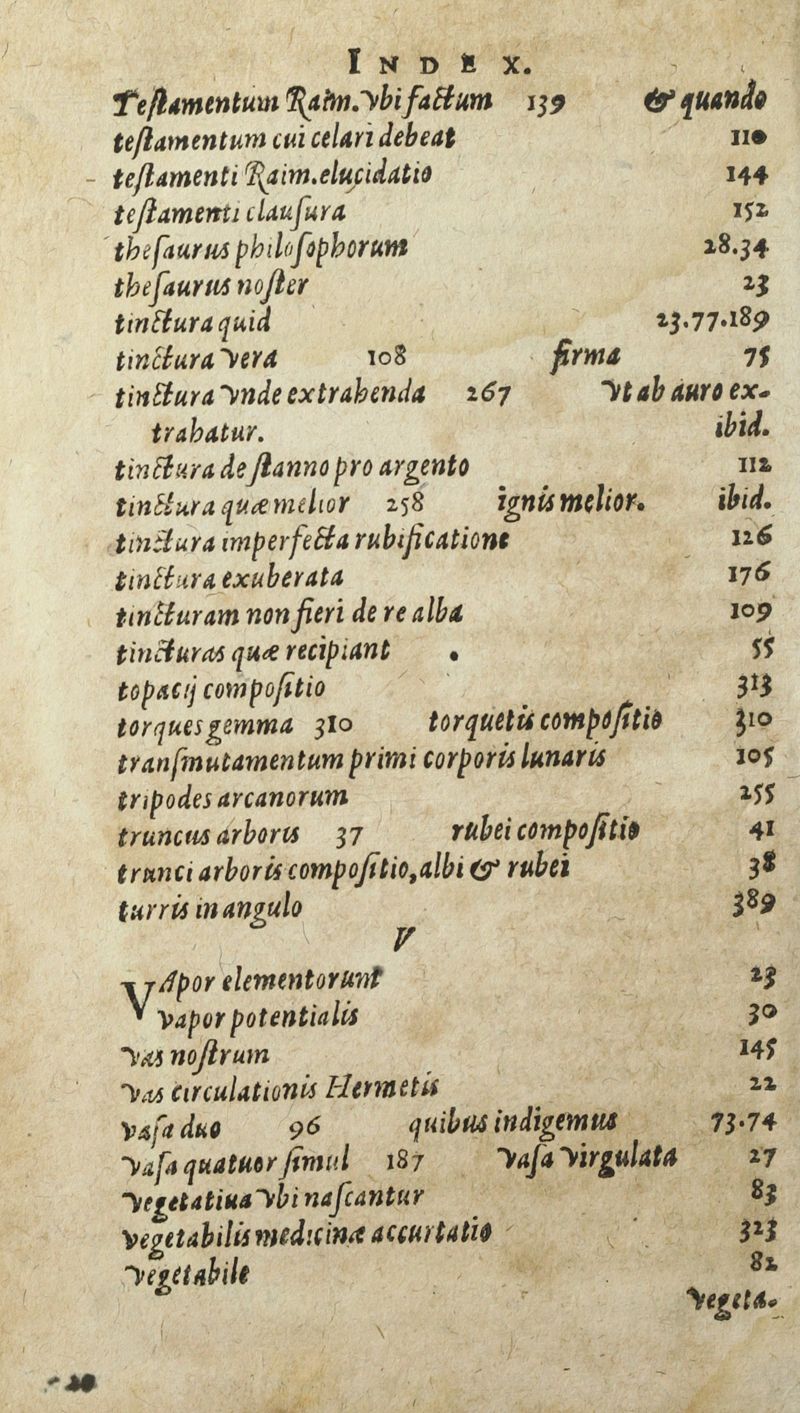 INDEX.
Testamentum Raim. vbi factum 139 & quando
testamentum cui celari debeat 110
testamenti Raim. elucidatio 144
testamenti clausura 152
thesaurus philosophorum 28.34
thesaurus noster 23
tinctura quid 23.77.189
tinctura vera 108 firma 75
tinctura vnde extrahenda 267 vt ab auro ex-
trahatur. ibid.
tinctura de stanno pro argento 112
tinctura quæ melior 258 ignis melior. ibid.
tinctura imperfecta rubificatione 126
tinctura exuberata 176
tincturam non fieri de re alba 109
tincturas quæ recipiant 55
topacij compositio 313
torques gemma 310 torquetis compositio 310
transmutamentum primi corporis lunaris 105
tripodes arcanorum 255
truncus arboris 37 rubei compositio 41
trunci arboris compositio, albi & rubei 38
turris in angulo 389
V
VApor elementorum 23
vapor potentialis 30
vas nostrum 145
vas circulationis Hermetis 22
vasa duo 96 quibus indigemus 73.74
vasa quatuor simul 187 vasa virgulata 27
vegetatiua vbi nascantur 83
vegetabilis medicinæ accurtatio 323
vegetabile 82
vegeta-